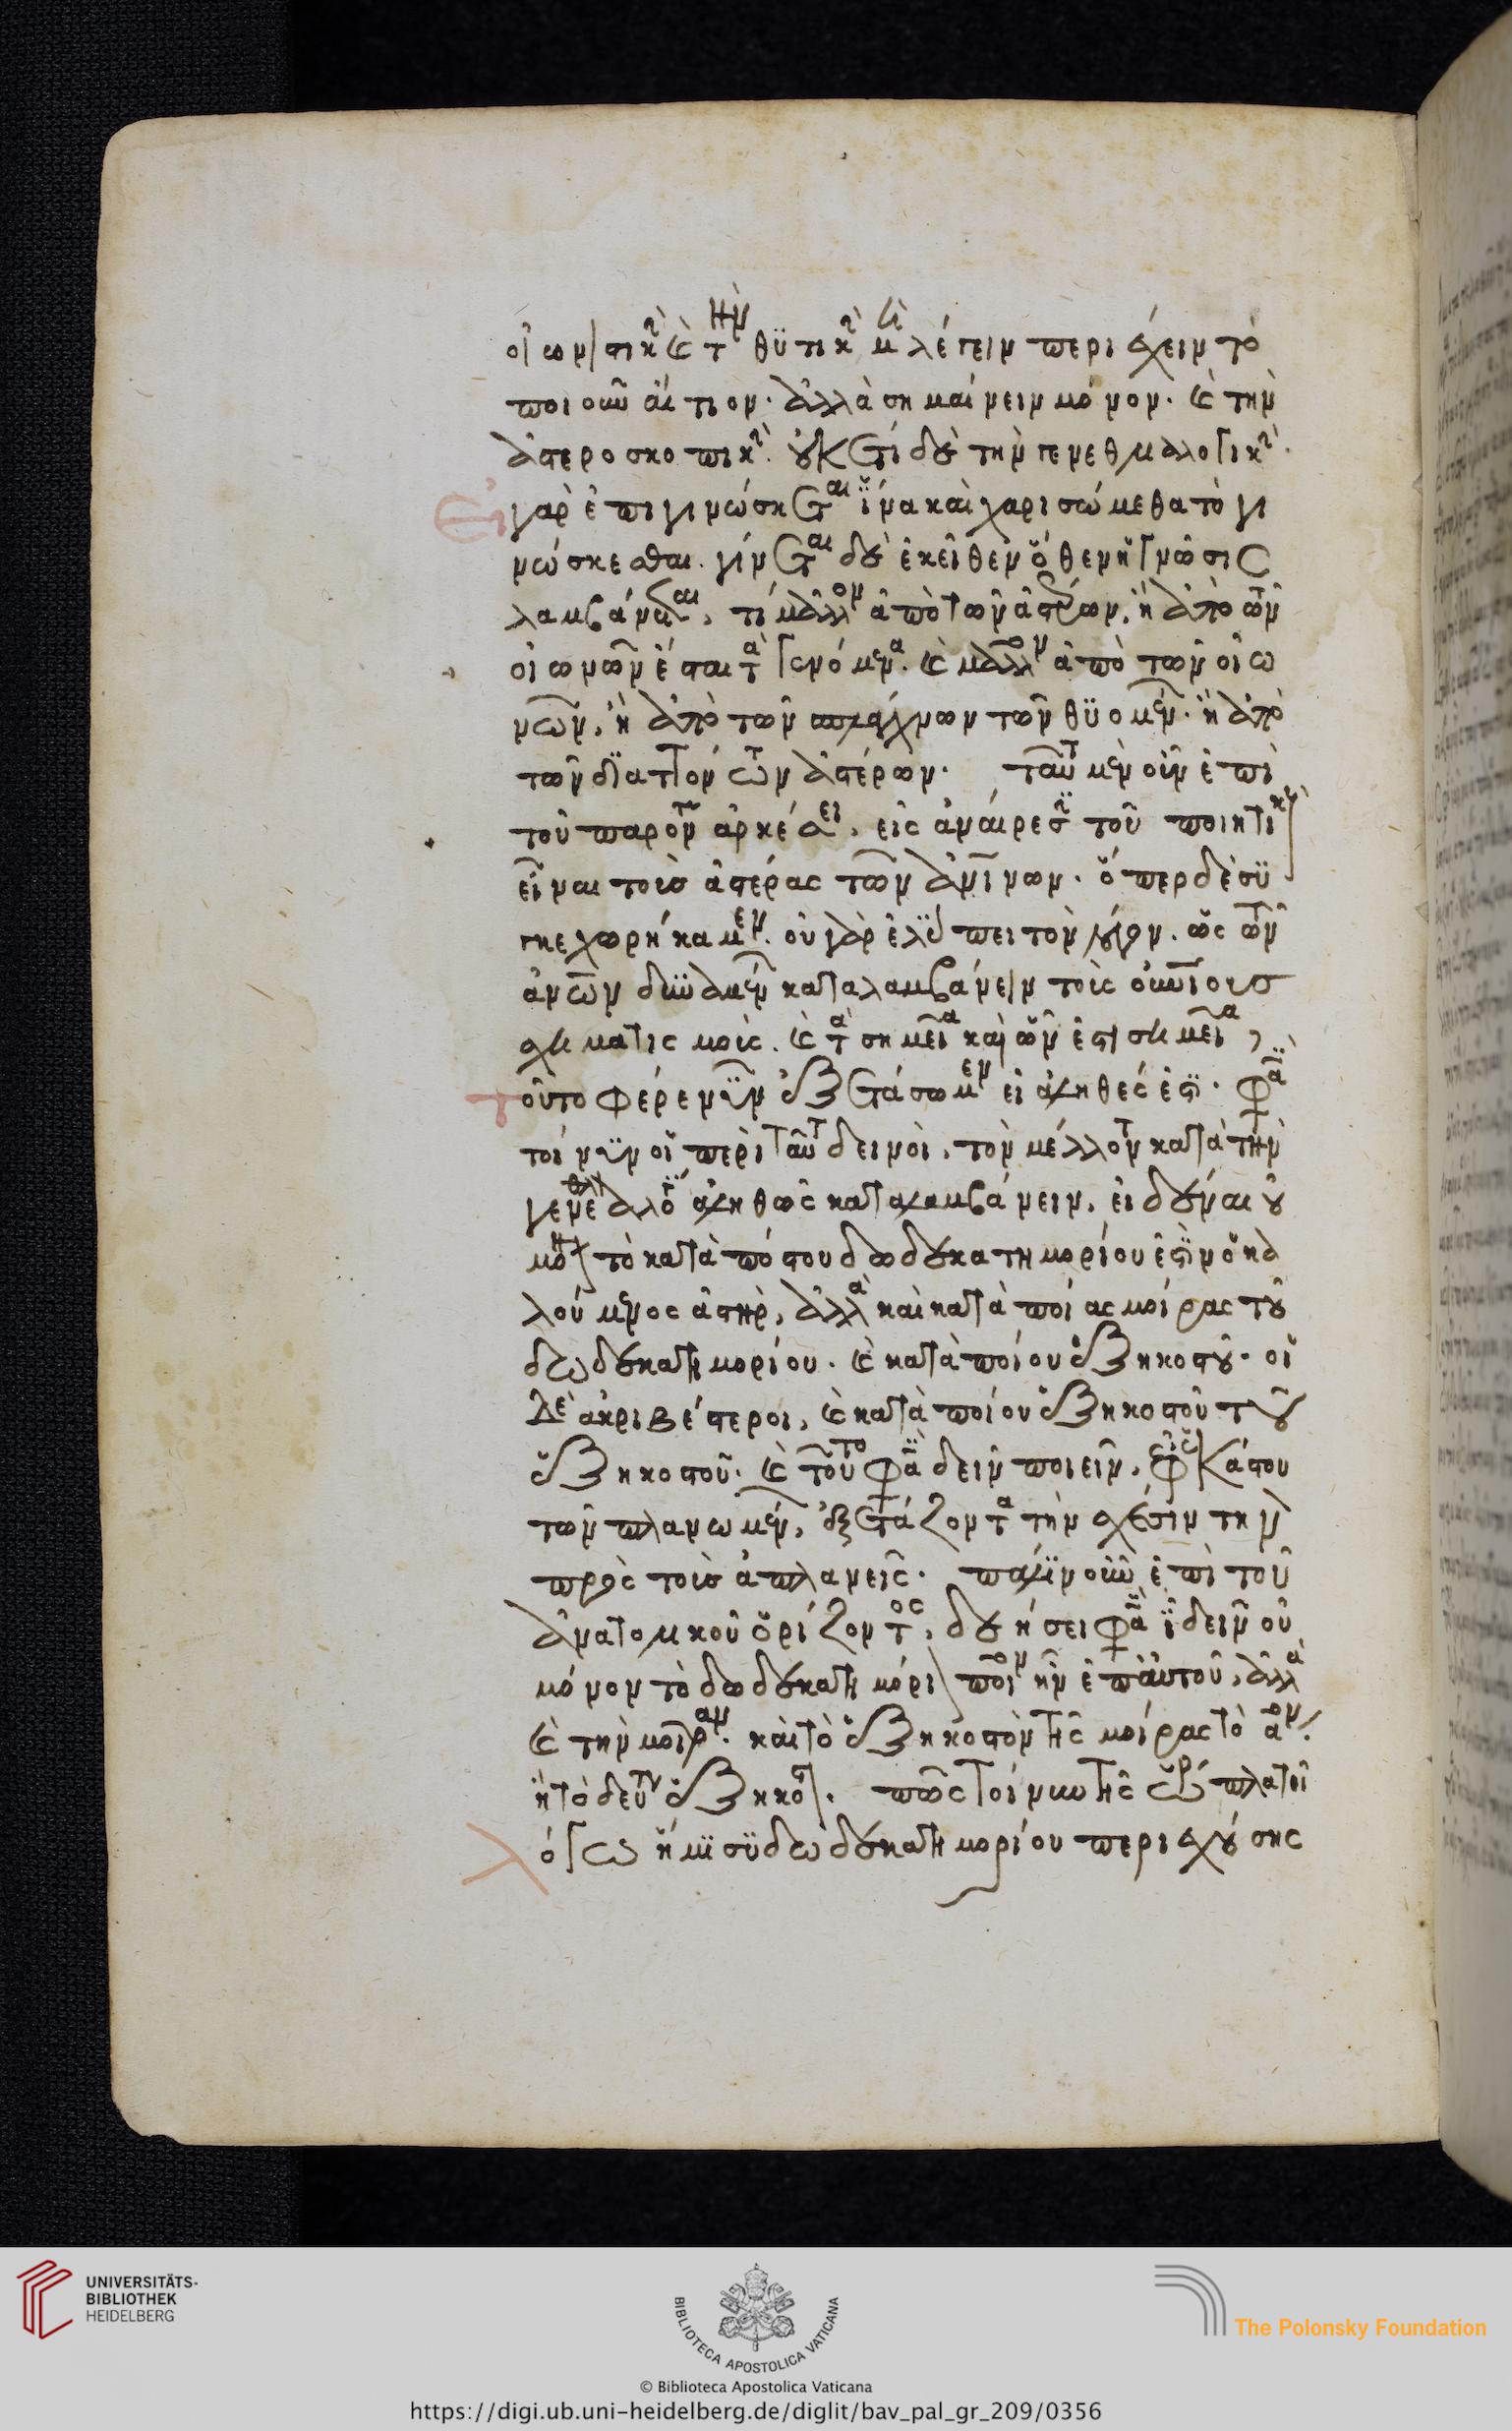 οἰωνιστικὴν καὶ τὴν θυτικὴν μὴ λέγειν περιέχειν τὸ
ποιοῦν αἴτιον. ἀλλὰ σημαίνειν μόνον. καὶ τὴν
ἀστεροσκοπικήν. οὐκέτι δὲ τὴν γενεθλιαλογικήν.
Εἰ γὰρ ἐπιγινώσκεται ἵνα καὶ χαρισώμεθα τὸ γι
νώσκεσθαι. γίνεται δὲ ἐκεῖθεν ὅθεν ἡ γνῶσις
λαμβάνεται, τί μᾶλλον ἀπὸ τῶν ἄστρων, ἢ ἀπὸ τῶν
οἰωνῶν ἔσται τὰ γενόμενα. καὶ μᾶλλον ἀπὸ τῶν οἰω
νῶν, ἢ ἀπὸ τῶν σπλάγχνων τῶν θυομένων. ἢ ἀπὸ
τῶν διαττόντων ἀστέρων. ταῦτα μὲν οὖν ἐπὶ
τοῦ παρόντος ἀρκέσει, εἰς ἀναίρεσιν τοῦ ποιητικοὺς
εἶναι τοὺς ἀστέρας τῶν ἀνθρωπίνων. ὅπερ δὲ συγ
κεχωρήκαμεν. οὐ γὰρ ἐλύπει τὸν λόγον. ὡς τῶν
ἀνθρώπων δυναμένων καταλαμβάνειν τοὺς οὐρανίους
σχηματισμούς. καὶ τὰ σημεῖα καὶ ὧν ἐστι σημεῖα,
τοῦτο φέρε νῦν ἐξετάσωμεν εἰ ἀληθές ἐστι. φασὶ
τοίνυν οἱ περὶ ταῦτα δεινοὶ, τὸν μέλλοντα κατὰ τὴν
γενεθλιαλογίαν ἀληθῶς καταλαμβάνειν, εἰδέναι οὐ
μόνον τὸ κατὰ πόστου δωδεκατημορίου ἐστὶν ὁ κα
λούμενος ἀστὴρ, ἀλλὰ καὶ κατὰ ποίας μοίρας τοῦ
δωδεκατημορίου. καὶ κατὰ ποίου ἑξηκοστοῦ. οἱ
δὲ ἀκριβέστεροι, καὶ κατὰ ποίου ἑξηκοστοῦ τοῦ
ἑξηκοστοῦ. καὶ τοῦτο φασὶ δεῖν ποιεῖν, ἐφ' ἑκάστου
τῶν πλανωμένων, ἐξετάζοντα τὴν σχέσιν τὴν
πρὸς τοὺς ἀπλανεῖς. πάλιν οὖν ἐπὶ τοῦ
ἀνατολικοῦ ὁρίζοντος, δεήσει φασὶν ἰδεῖν οὐ
μόνον τὸ δωδεκατημόριον ποῖον ἦν ἐπ' αὐτοῦ, ἀλλὰ
καὶ τὴν μοῖραν. καὶ τὸ ἑξηκοστὸν τῆς μοίρας τὸ αον.
ἢ τὸ δεύτερον ἑξηκοστόν. πῶς τοίνυν τῆς ὥρας πλατεῖ
λόγῳ ἥμισυ δωδεκατημορίου περιεχούσης
UNIVERSITÄTS-
BIBLIOTHEK
HEIDELBERG
BIBLIOTECA APOSTOLICA VATICANA
The Polonsky Foundation
© Biblioteca Apostolica Vaticana
https://digi.ub.uni-heidelberg.de/diglit/bav_pal_gr_209/0356